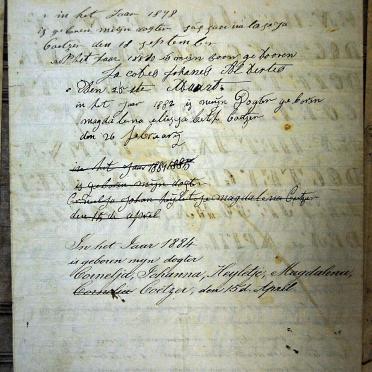 in het Jaar 1878
is geboren mijn dogter
Coetzer den 18 september
in het jaar 1880 is mijn soon geboren
Jacobus Johanes Albertus
Den 25 ste Maart.
in het jar 1882 is mijn Dogter geboren
magdalena elisabeth Coetzer
den 26 februarij
in het jaar 1884
is geboren mijn dogter
magdalena Coetzer
den 15 d. april
In het Jaar 1884
is geboren mijn dogter
Cornelja, Johanna, Heyldtje, Magdalena,
Cornelia Coetzer, den 15 d. April